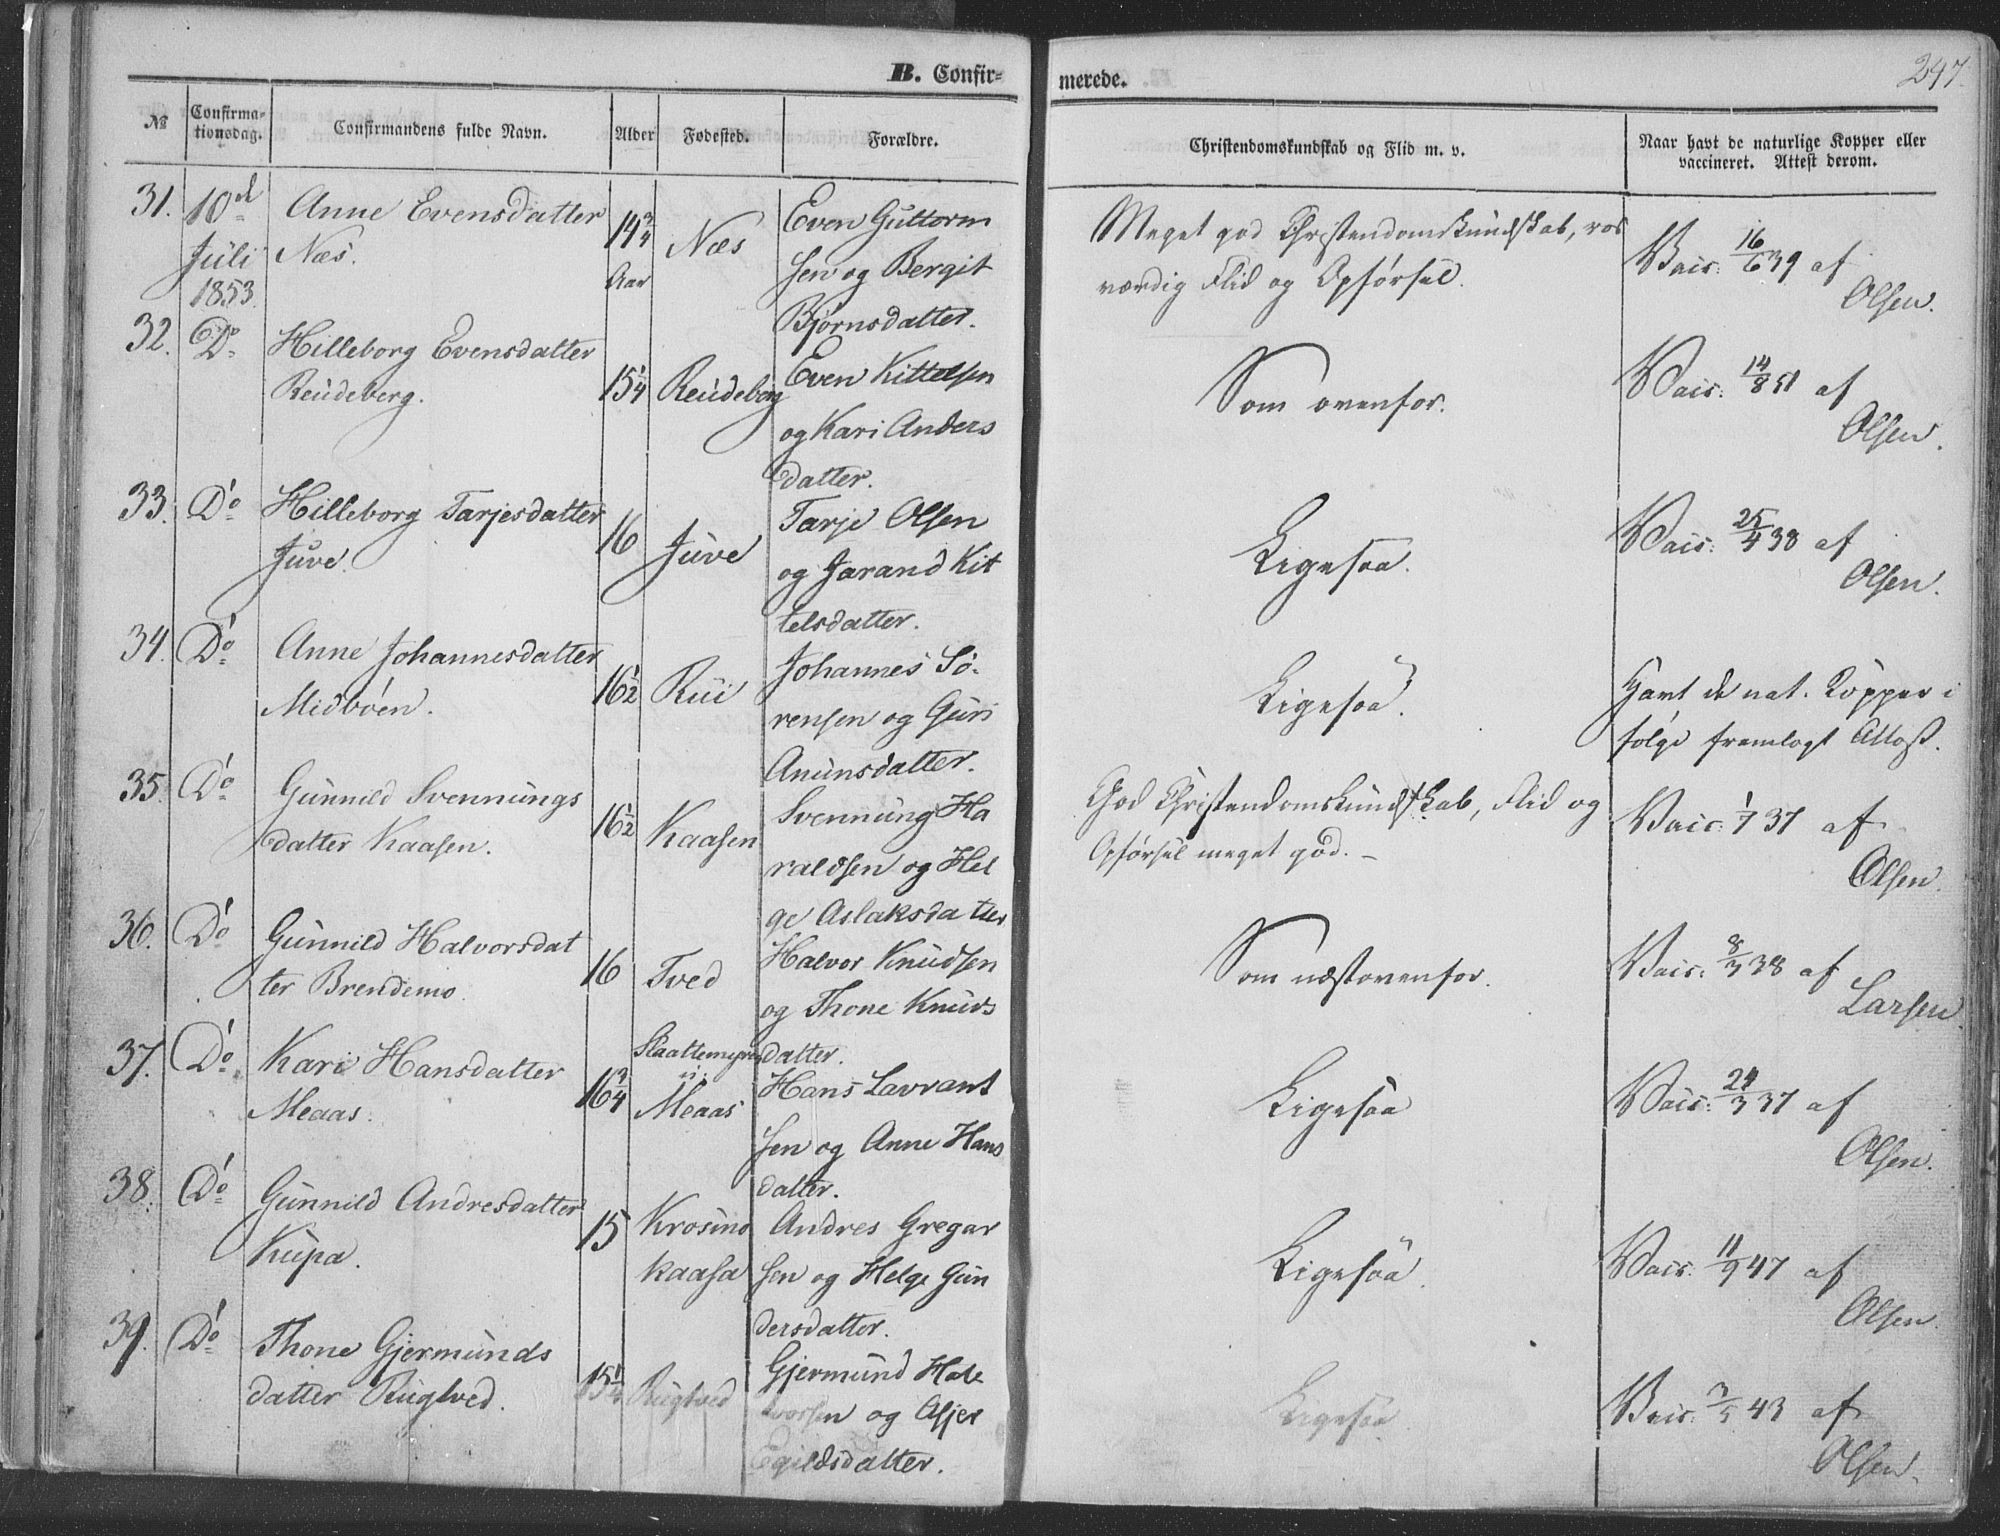 B. Confirmerede.
247.
No
Confirmationsdag.
Confirmandens fulde Navn.
Alder
Fødested.
Forældre.
Christendomskundskab og Flid m. v.
Naar havt de naturlige Kopper eller
vaccineret. Attest derom.
31. 10de Juli 1853.
Anne Evensdatter
Næs.
14 3/4 Aar
Næs
Even Guttorm
sen og Bergit
Bjørnsdatter.
Meget god Christendomskundskab, ros
værdig Flid og Opførsel.
Vacc: 16/6 39 af
Olsen.
32. Do
Hilleborg Evensdatter
Reudeberg.
15 1/4
Reudeberg
Even Kittelsen
og Kari Anders
datter.
Som ovenfor.
Vacc: 14/8 51 af
Olsen.
33. Do
Hilleborg Tarjesdatter
Juve.
16
Juve
Tarje Olsen
og Jarand Kit
telsdatter.
Ligesaa.
Vacc: 25/4 38 af
Olsen.
34. Do
Anne Johannesdatter
Midbøen.
16 1/2
Rui
Johannes Sø-
rensen og Guri
Anunsdatter.
Ligesaa.
Havt de nat. Kopper i
følge fremlagt Attest.
35. Do
Gunnild Svennungs
datter Kaasen.
16 1/2
Kaasen
Svennung Ha
raldsen og Hel
ge Aslaksdatter
God Christendomskundskab, Flid og
Opførsel meget god. –
Vacc: 1/7 37 af
Olsen.
36. Do
Gunnild Halvorsdat
ter Brendemo.
16
Tved
Halvor Knudsen
og Thone Knuds
datter.
Som næstovenfor.
Vacc: 8/3 38 af
Larsen.
37. Do
Kari Hansdatter
Meaas.
16 3/4
Slaattemyren
u:
Meaas
Hans Lavrant
sen og Anne Hans
datter.
Ligesaa
Vacc: 24/3 37 af
Olsen.
38. Do
Gunnild Andresdatter
Kupa.
15
Krosmo
kaasa
Andres Gregar
sen og Helge Gun
dersdatter.
Ligesaa.
Vacc: 11/9 47 af
Olsen.
39. Do
Thone Gjermunds
datter Rugtved.
15 1/4
Rugtved
Gjermund Hal
vorsen og Asjer
Egildsdatter.
Ligesaa.
Vacc: 3/5 43 af
Olsen.